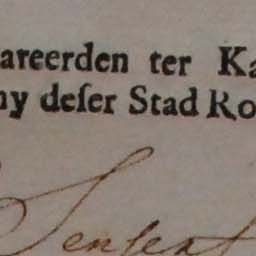 areerden ter Ka
ny deser Stad Ro